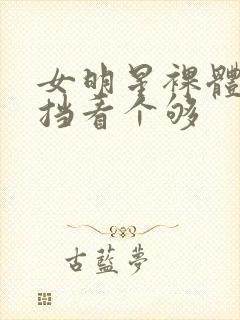 女明星裸體
挡着个够
古藍夢